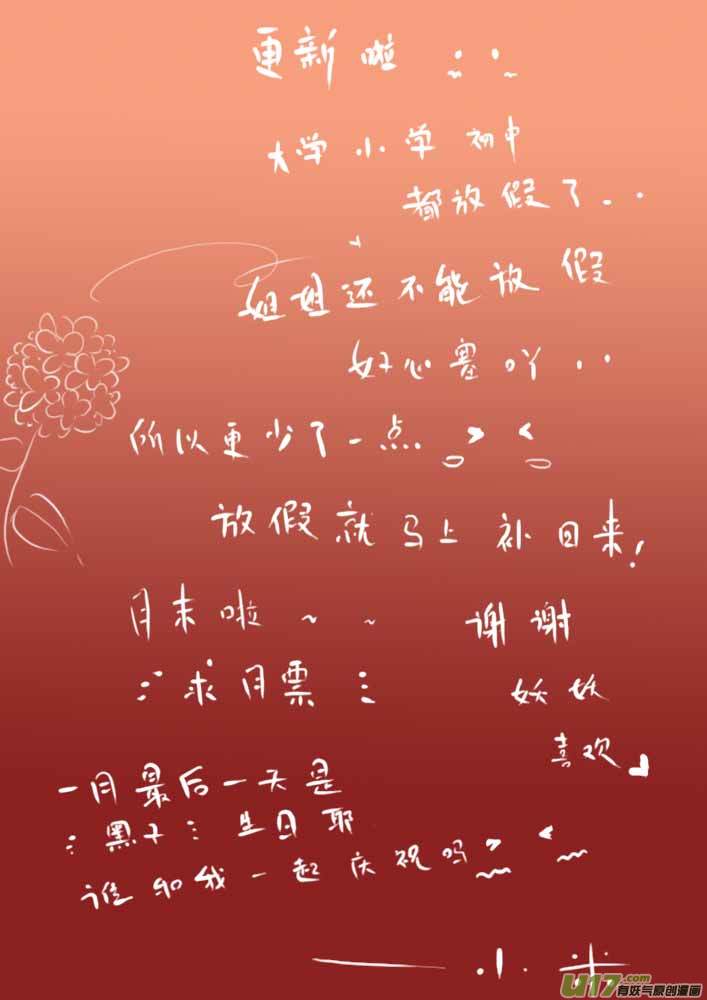 更新啦
大学小学初中
都放假了..
姐姐还不能放假
好心塞吖..
所以更少了一点
放假就马上补回来!
月末啦~~
求月票
谢谢
妖妖
喜欢
一月最后一天是
黑子生日耶
谁和我一起庆祝吗
——小米
U17.com
有妖气原创漫画